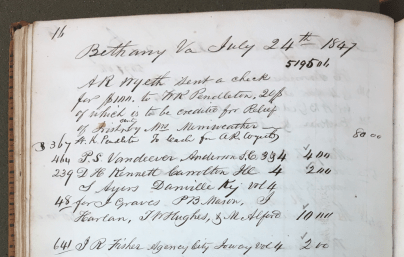 16
Bethany Va July 24th 1847
5195 04
A R Wyeth sent a check
for $100. to W K Pendleton, 20$
of which is to be credited for Relief
of Mrs Merriweather
367 W. K. Pendleton To Cash for A R Wyeth 50 00
464 T. S. Vandiever Anderson S. C. 3 & 4 4 00
239 D H Bennett Carrolton Ill 4 2 00
T Ayers Danville Ky vol 4
48 for J Graves P B Mason, J
Harlan, T W Hughes, & M Alford 10 00
641 J R Fisher Agency City Ioway vol 4 2 00